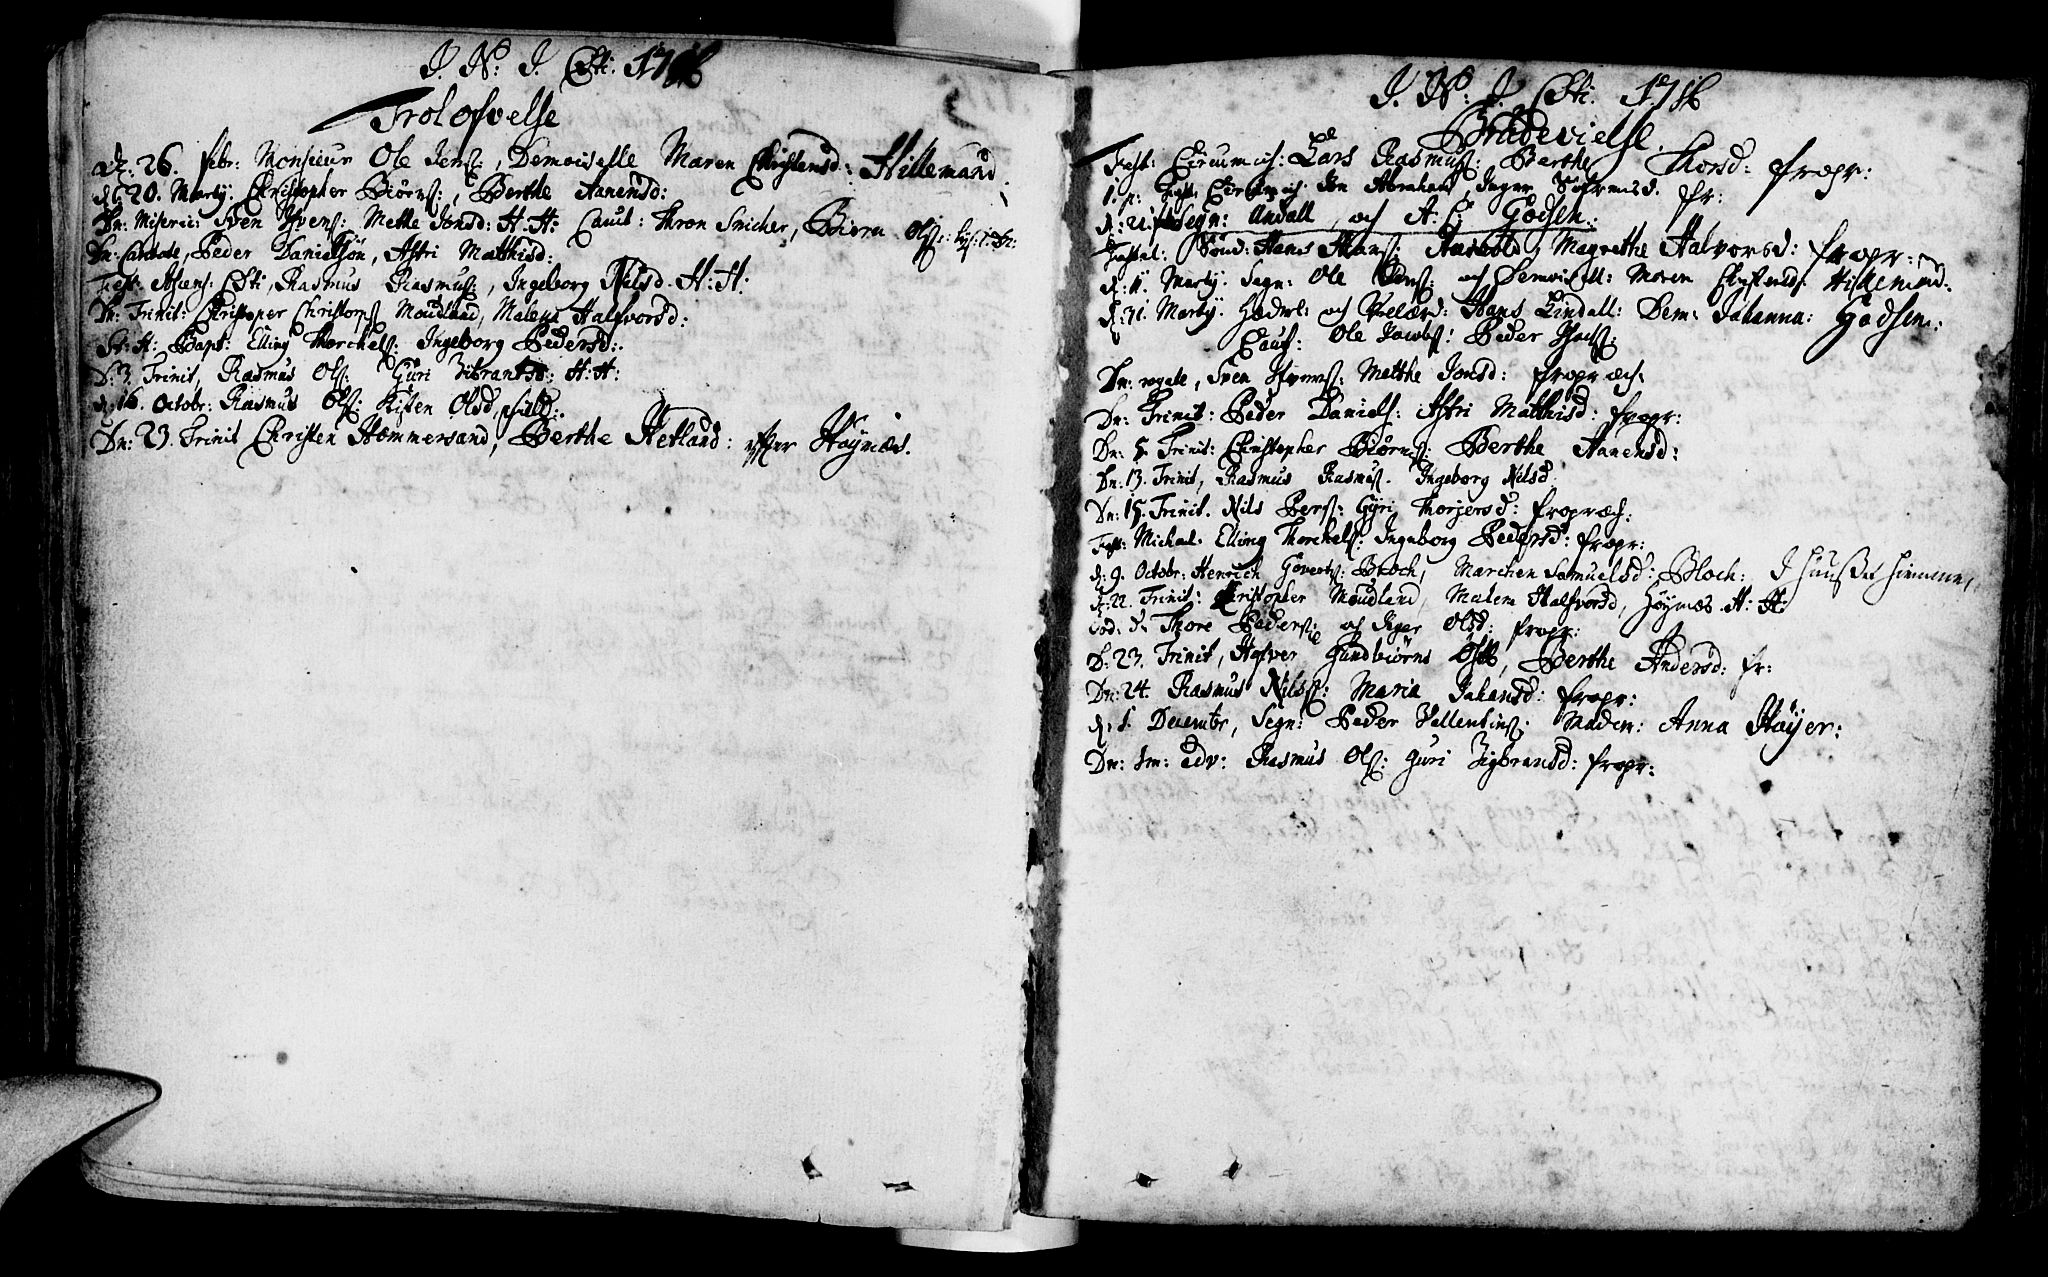 J. N: J. Chti. 1716
Trolofvelse
d: 26. febr: Monsieur Ole Jens:, Demoiselle Maren Christensd: Hillemand.
d: 20. Martij. Christopher Biörns:, Berthe Aanensd:
Dn: Miseric: Sven Ivens: Mette Jonsd: H: H: Caut: Thron Snicher, Biörn Ols:
Dn: Cantate, Peder Danielsön, Astri Mathisd:
Fest: Ascens: Chti, Rasmus Rasmus:, Ingeborg Nilsd. H: H:
Dn: Trinit: Christoper Christophs Moudland, Malene Halfvorsd:
St: H: Bapt: Elling Thorchels: Ingeborg Pedersd:
D: 3. Trinit, Rasmus Ols: Guri Zibrantsd: H: H:
d. 16. Octobr: Rasmus Ols: Kisten Olsd,
Dn: 23. Trinit Christen Hommersand, Berthe Hetland: efter Høynæs.
J. N: J. Chti. 1716
Brudevielse.
Fest: Circumcis: Lars Rasmus: Berthe Thorsd: fropr:
Fest. Circumcis: Jon Abrahams, Inger Sörensd. fr:
Segn: Andall, och A. C: Godsen:
Fastel: Sönd: Hans Hans: Magrethe Halvorsd: fropr:
d: 11. Martij. Segn: Ole Jens: och Demoisell: Maren Christensd: Hillemand.
d: 31. Martij. Hæderl: och Velærd: Hans Lindall: Dem: Johanna: Godsen:
Caut: Ole Jacobs: Peder
Dn: rogate, Sven Ivers: Metthe Jonsd: fropræch:
Dn: Trinit: Peder Daniels: Astri Matthisd: fropr:
Dn: 5. Trinit: Christopher Biörns: Berthe Aanensd:
Dn: 13. Trinit, Rasmus Rasmus. Ingeborg Nilsd
Dn: 15. Trinit. Nils Pers: Gyri Thorjersd: fropræch:
Fest: Michael: Elling Thorchels: Ingeborg Pedersd: fropr:
d: 9. Octobr: Henrich Goverts: Broch, Marchen Samuelsd: Bloch: I Huuset hiemme,
D: 22. Trinit: Christopher Moudland, Malene Halfvorsd, Höynæs. H: H:
Eod: d: Thore Peders: och Inger Olsd: fropr:
D: 23. Trinit, Halver Gundbiörns, Berthe Andersd: fr:
Dn: 24. Rasmus Nils: Maria Johansd: fropr:
d. 1. Decembr, Segn: Peder Vallentins: Madm: Anna Höyer:
Dn: 1m: adv: Rasmus Ols: Guri Zigbransd: fropr: